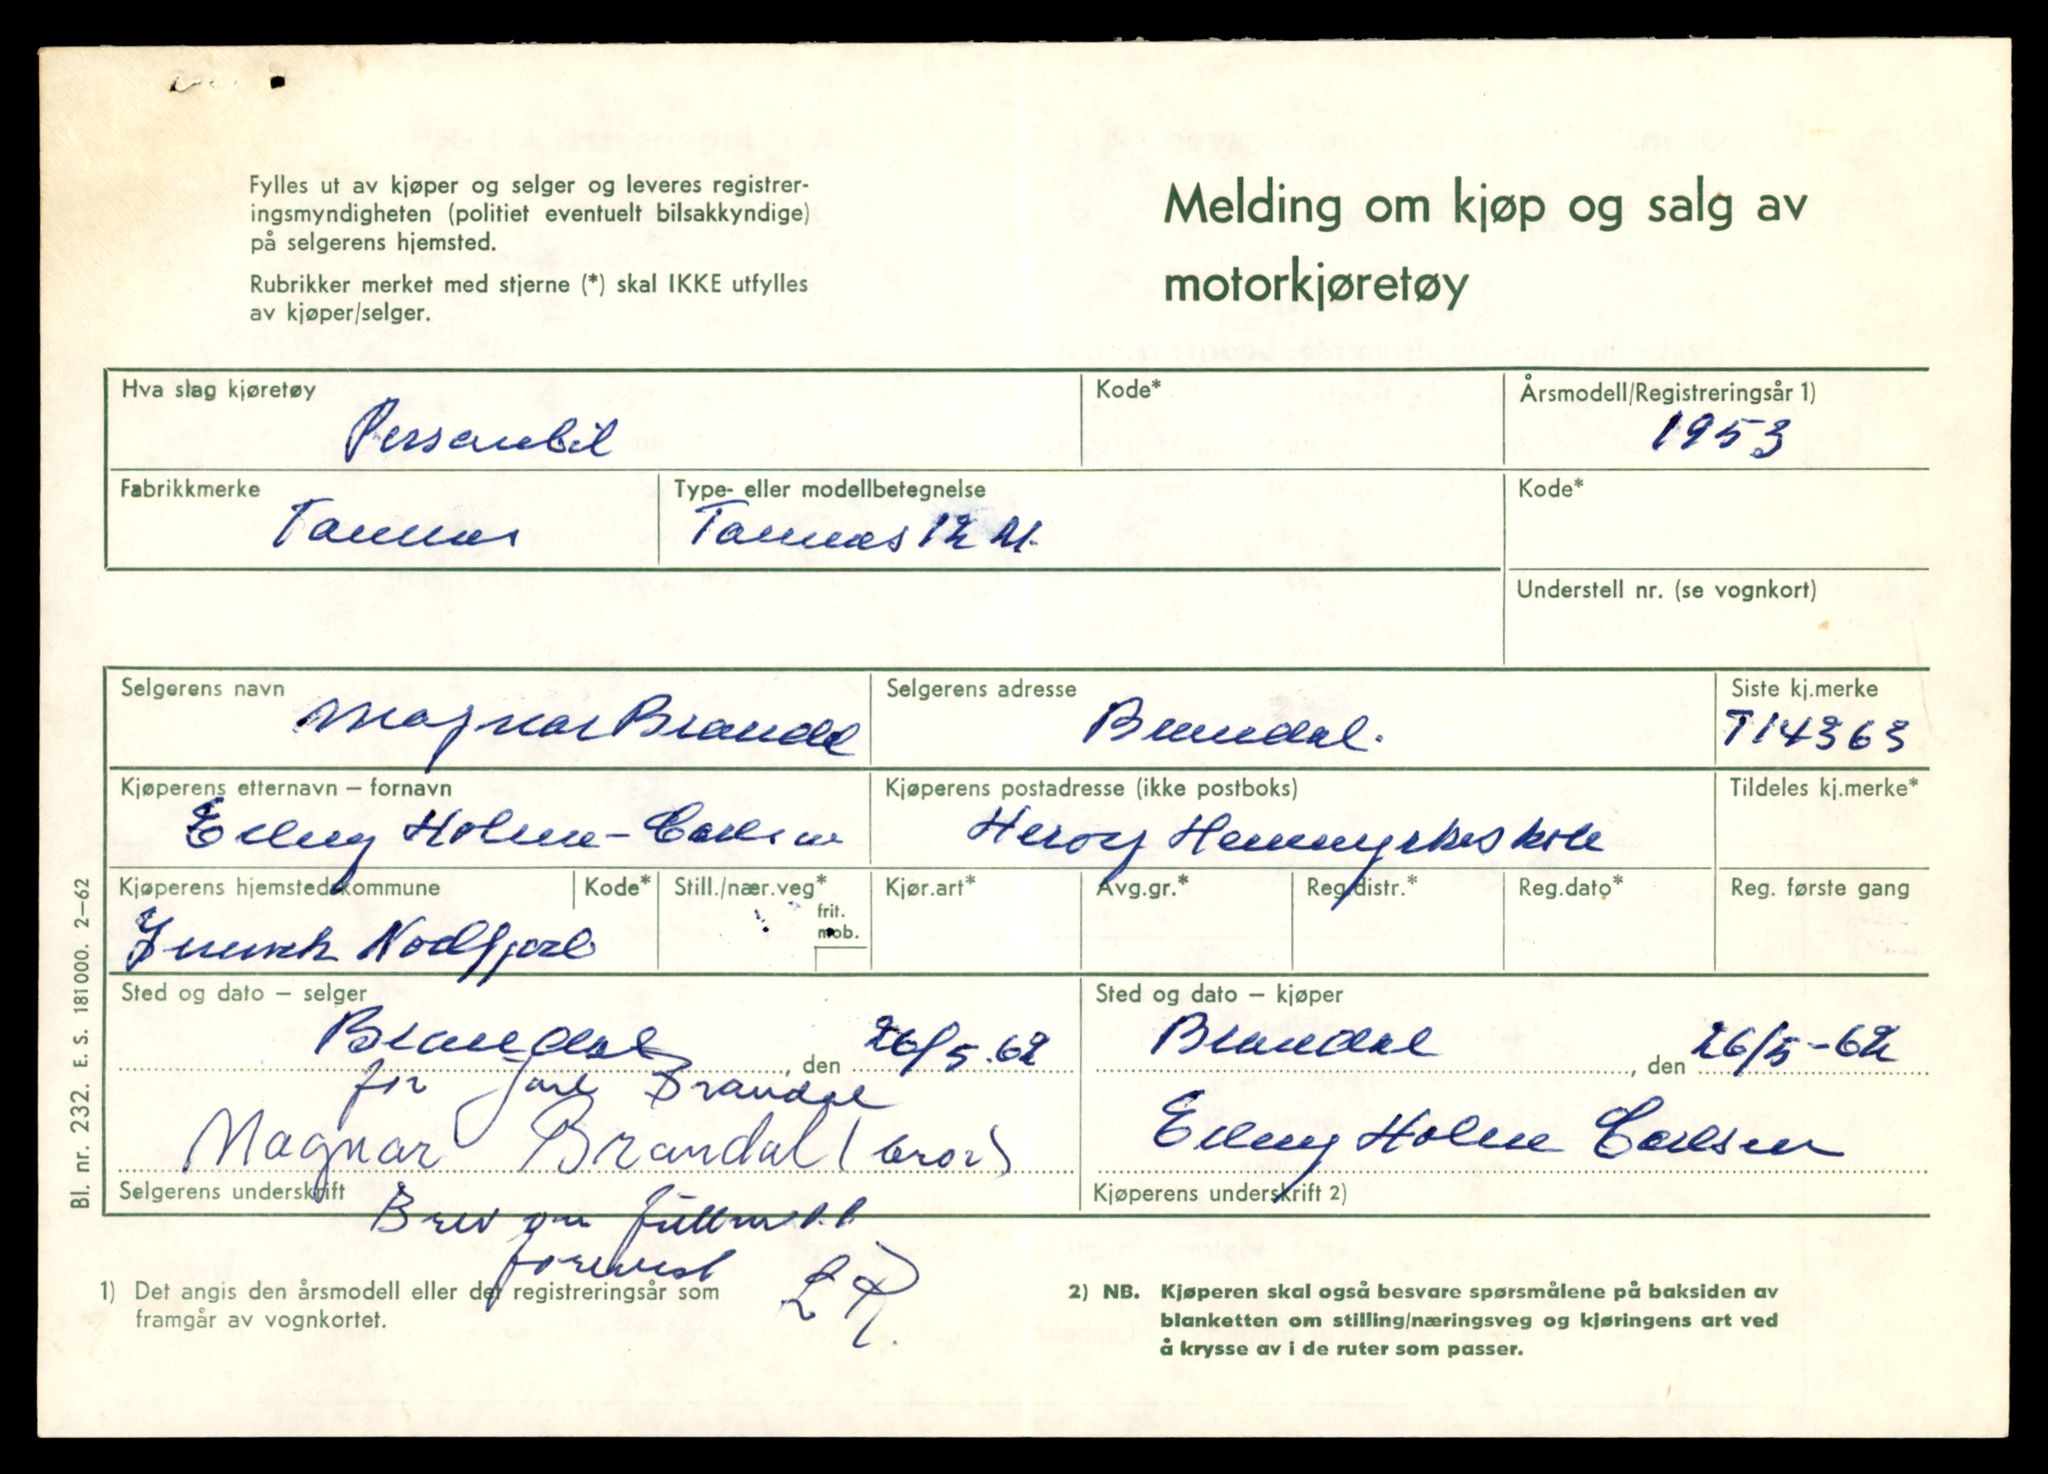 Fylles ut av kjøper og selger og leveres registrer-
ingsmyndigheten (politiet eventuelt bilsakkyndige)
på selgerens hjemsted.
Rubrikker merket med stjerne (*) skal IKKE utfylles
av kjøper/selger.
Melding om kjøp og salg av
motorkjøretøy
Hva slag kjøretøy
Personbil
Kode*
Årsmodell/Registreringsår 1)
1953
Fabrikkmerke
Taunus
Type- eller modellbetegnelse
Taunus 12 M.
Kode*
Understell nr. (se vognkort)
Selgerens navn
Magnar Brandal
Selgerens adresse
Brandal.
Siste kj.merke
T14363
Kjøperens etternavn – fornavn
Holme-Carlsen
Kjøperens postadresse (ikke postboks)
Herøy
Tildeles kj.merke*
Kjøperens hjemstedskommune
Kode*
Still./nær.veg*
frit.
mob.
Kjør.art*
Avg.gr.*
Reg.distr.*
Reg.dato*
Reg. første gang
Sted og dato – selger
Brandal, den 26/5.62
for Jarl Brandal
Magnar Brandal (bror)
Selgerens underskrift
Sted og dato – kjøper
Brandal, den 26/5-62
Holme Carlsen
Kjøperens underskrift 2)
Brev om
L R.
1) Det angis den årsmodell eller det registreringsår som
framgår av vognkortet.
2) NB. Kjøperen skal også besvare spørsmålene på baksiden av
blanketten om stilling/næringsveg og kjøringens art ved
å krysse av i de ruter som passer.
Bl. nr. 232. E. S. 181000. 2–62